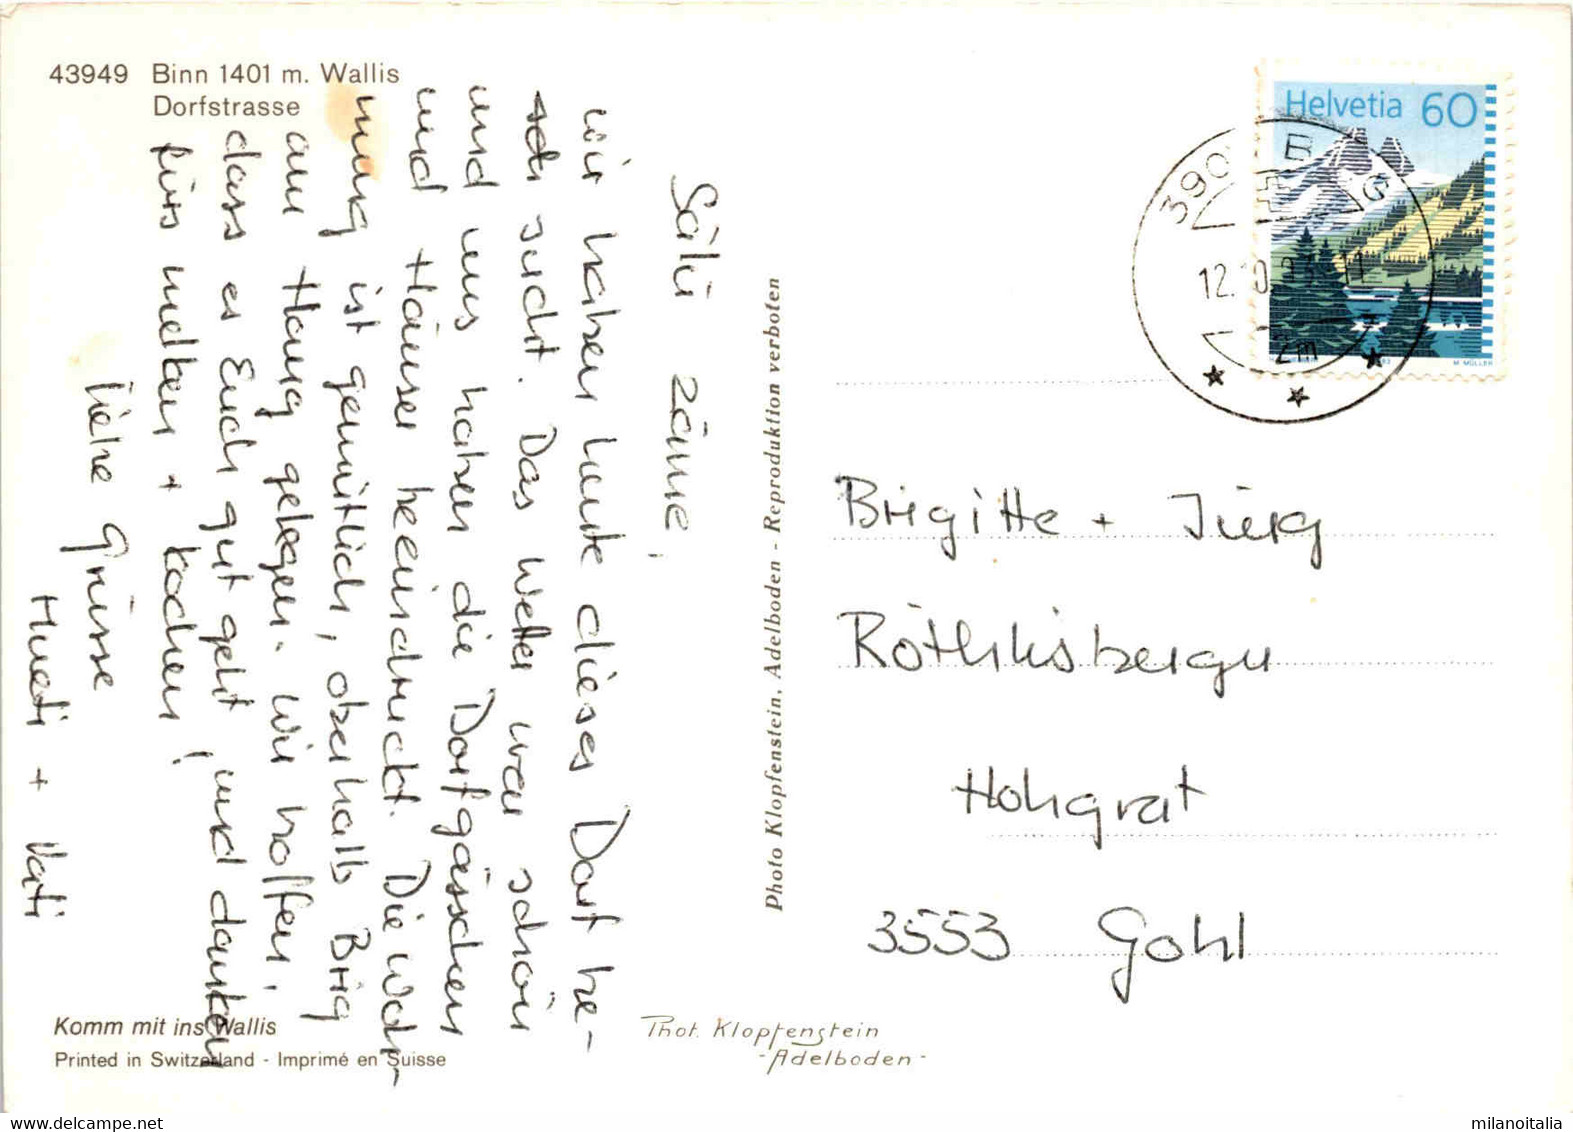 43949 Binn 1401 m. Wallis
Dorfstrasse
Sälü zäme,
wir haben heute dieses Dorf be-
sucht. Das Wetter war schön
und uns haben die Dorfgässchen
und Häuser beeindruckt. Die Woh-
nung ist gemütlich, oberhalb Brig
am Hang gelegen. Wir hoffen,
dass es Euch gut geht, und danken
fürs melken + kochen!
Liebe Grüsse
Mueti + Vati
Komm mit ins Wallis
Printed in Switzerland - Imprimé en Suisse
Photo Klopfenstein, Adelboden - Reproduktion verboten
Phot. Klopfenstein
- Adelboden -
Helvetia 60
M. MÜLLER
390
BRIG
12.10.93 11
2m
Brigitte + Jürg
Röthlisberger
Hohgrat
3553 Gohl
milanoitalia